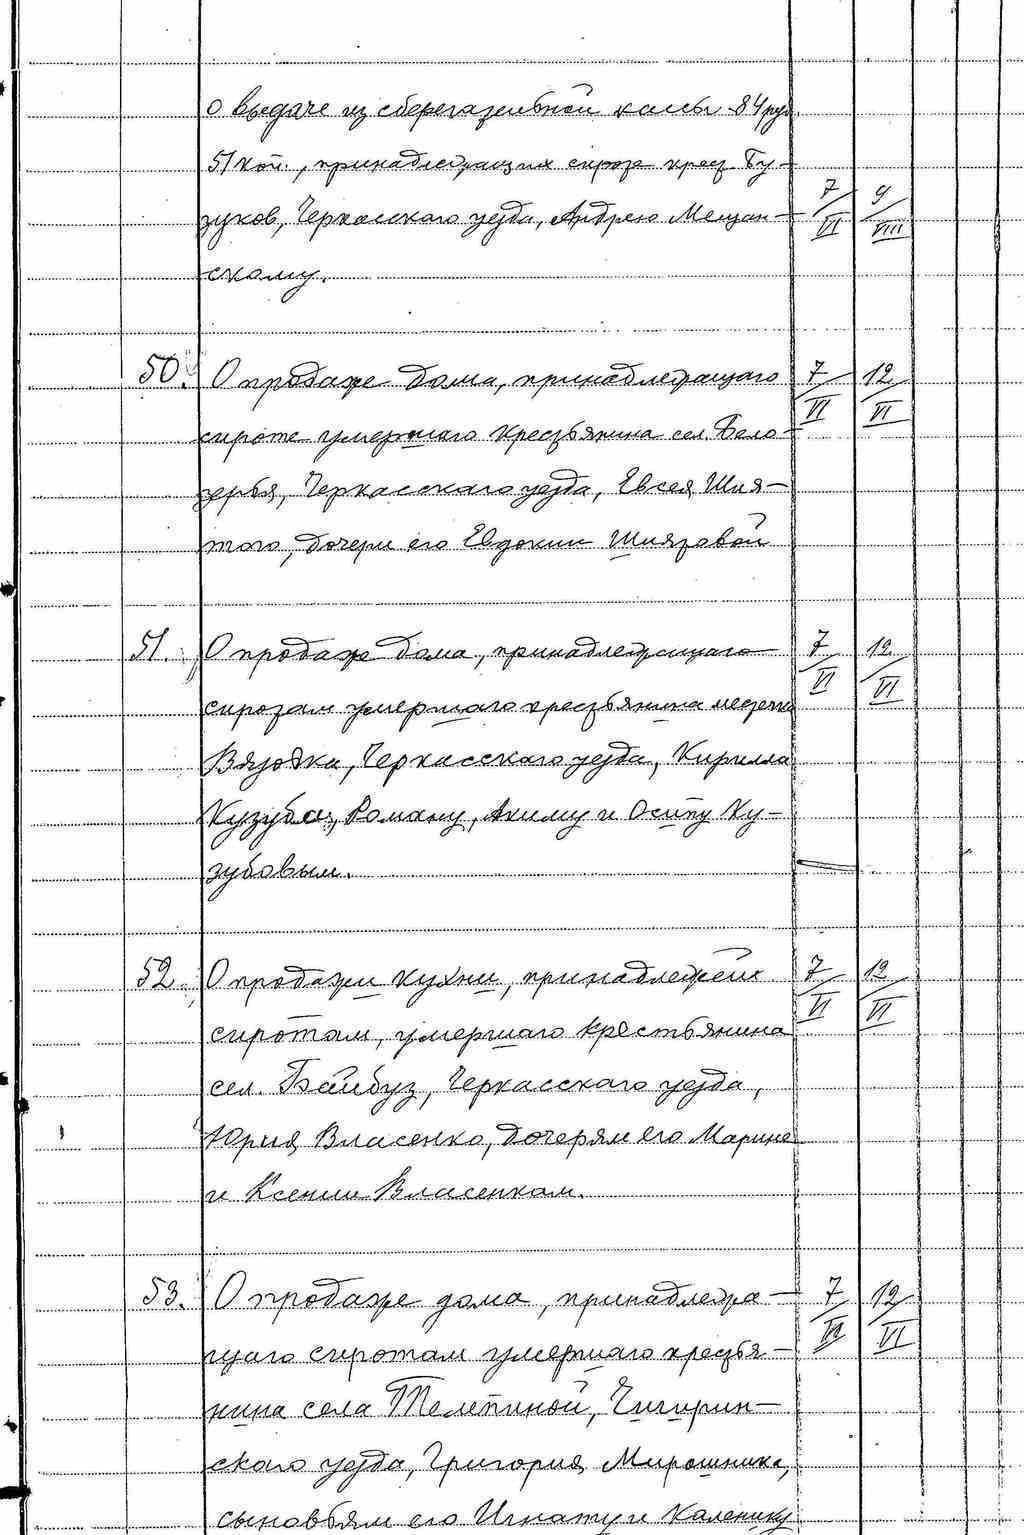 о выдаче из сберегательной кассы 84 руб.
51 коп., принадлежащих сироте крес. Бу-
зуков, Черкасского уезда, Андрею Мещан-
скому.
7/VI 9/VIII
50. О продаже дома, принадлежащаго 7/VI 12/VI
сироте умершаго крестьянина сел. Бело-
зерья, Черкасского уезда, Евсея Шия-
того, дочери его Евдокии Шиятовой
51. О продаже дома, принадлежащаго 7/VI 12/VI
сиротам умершаго крестьянина местечка
Вязовка, Черкасского уезда, Кирилла
Кузуба, Роману, Акиму и Осипу Ку-
зубовым.
52. О продажи кухни, принадлежей 7/VI 12/VI
сиротам, умершаго крестьянина
сел. Байбуз, Черкасскаго уезда,
Юрия Власенко, дочерям его Марине
и Ксении Власенкам.
53. О продаже дома, принадлежа- 7/VI 12/VI
щаго сиротам умершаго крестья-
нина села Телепиной, Чигирин-
ского уезда, Григория Мирошника,
сыновьям его Игнату и Каленику